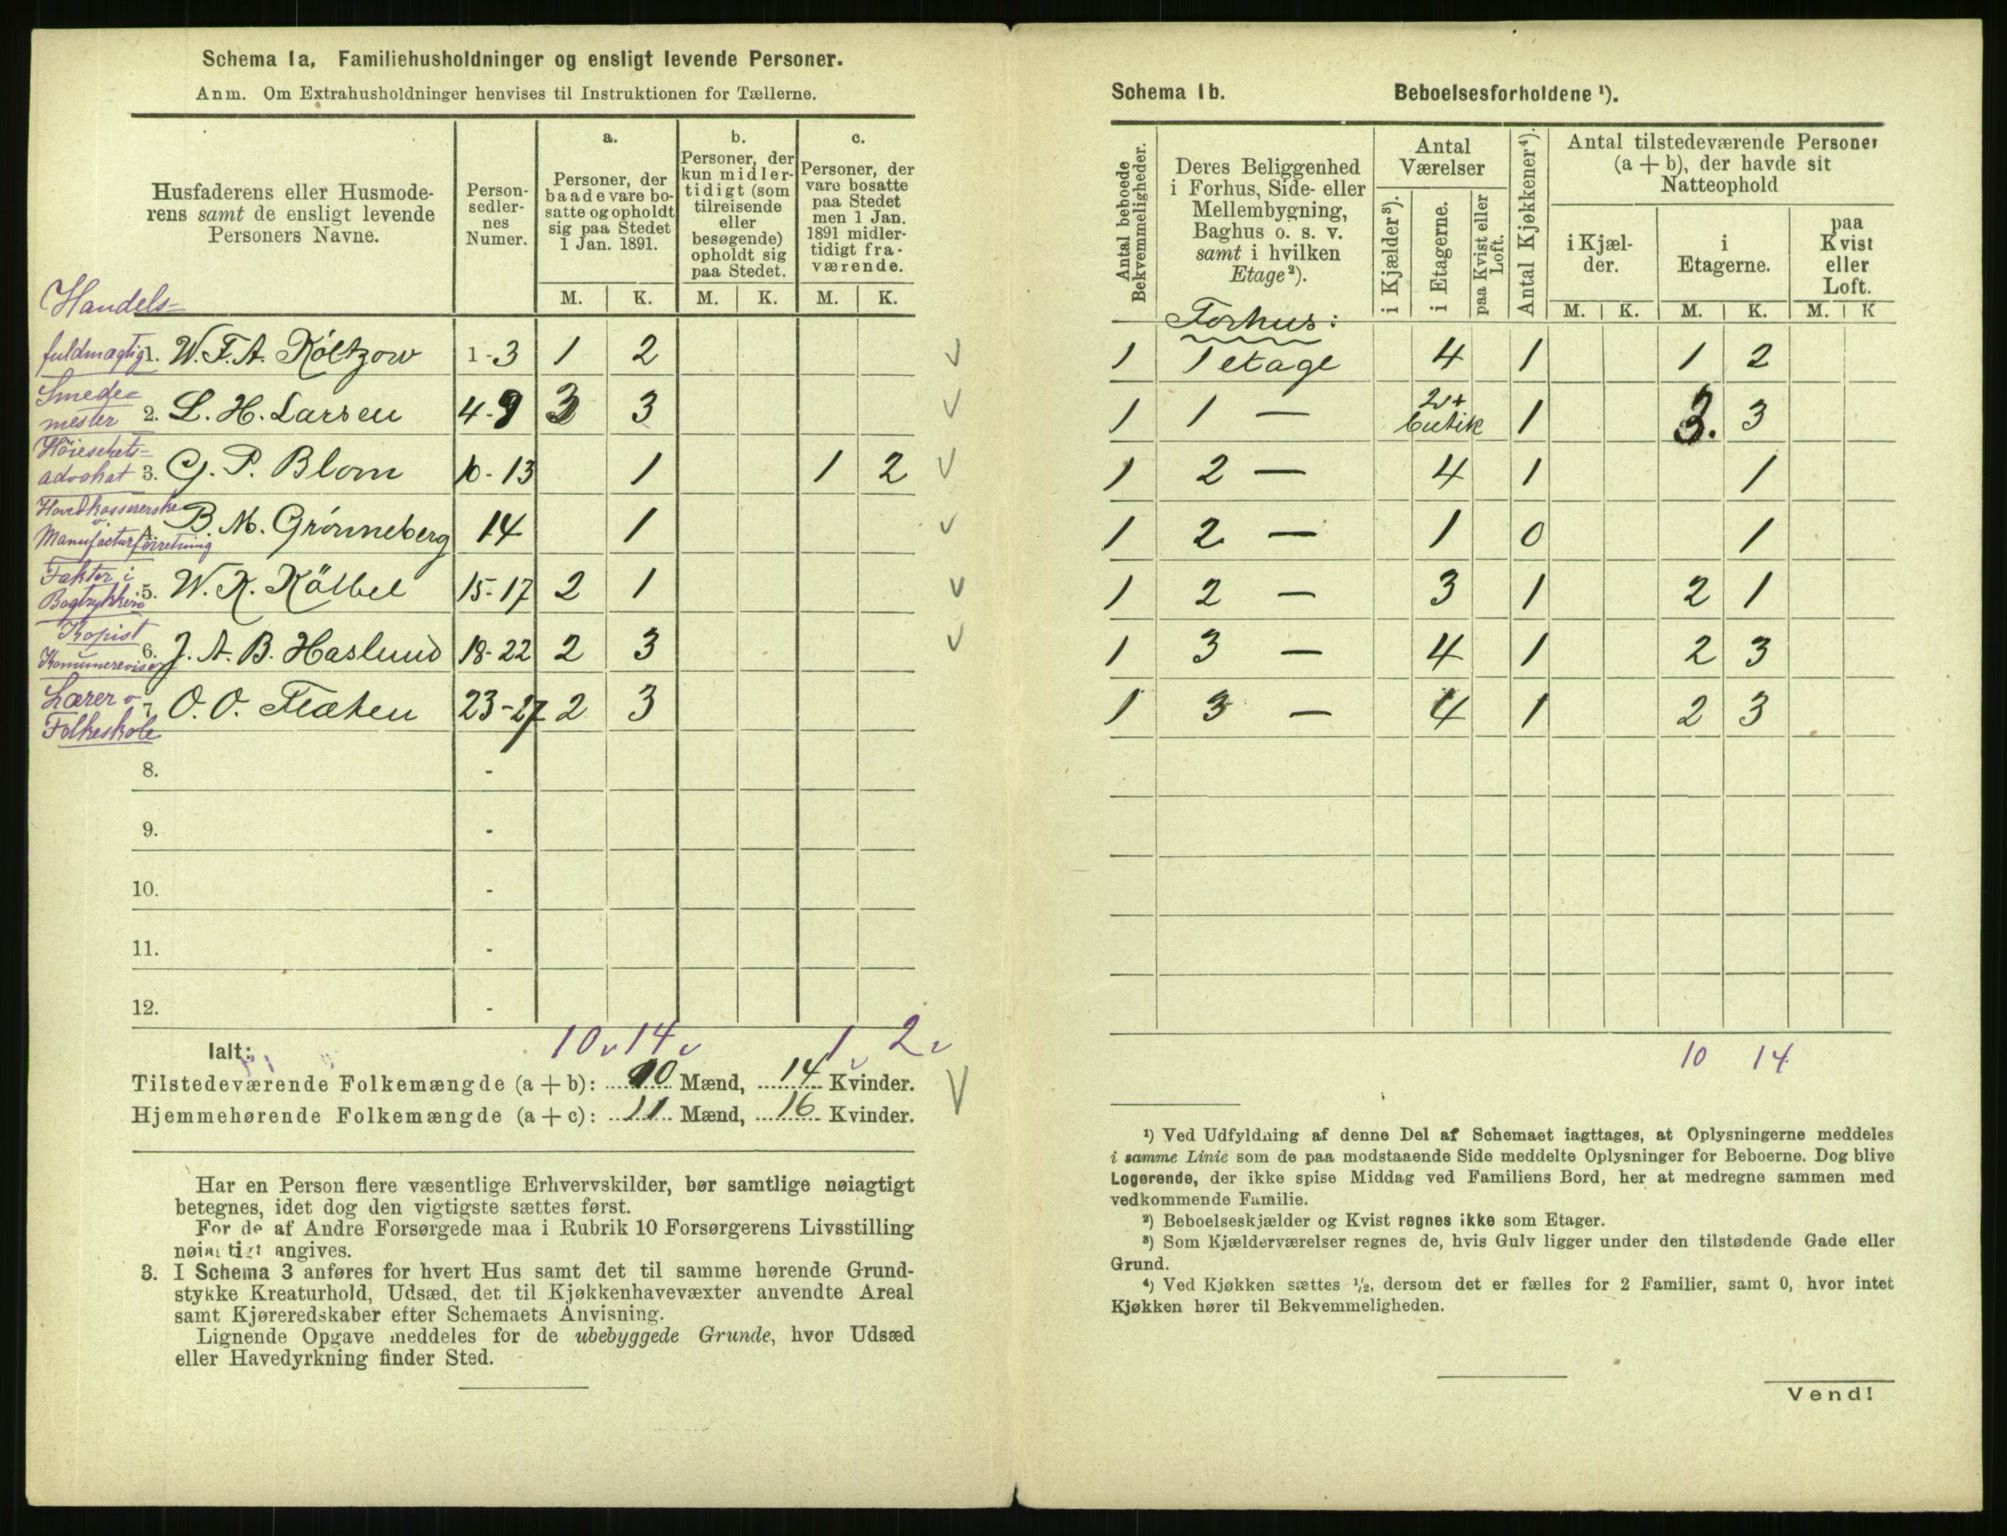 Schema 1a, Familiehusholdninger og ensligt levende Personer.
Anm. Om Extrahusholdninger henvises til Instruktionen for Tællerne.
Husfaderens eller Husmode-
rens samt de ensligt levende
Personers Navne.
Person-
sedler-
nes
Numer.
a.
Personer, der
baade vare bo-
satte og opholdt
sig paa Stedet
1 Jan. 1891.
M. K.
b.
Personer, der
kun midler-
tidigt (som
tilreisende
eller
besøgende)
opholdt sig
paa Stedet.
M. K.
c.
Personer, der
vare bosatte
paa Stedet
men 1 Jan.
1891 midler-
tidigt fra-
værende.
M. K.
Handels-
fuldmægtig 1. W. F. A. Költzow 1-3 1 2
Smede-
mester 2. L. H. Larsen 4-9 3 3
Høiesterets-
advokat 3. G. P. Blom 10-13 1 1 2
Hovedkassererske
v.
Manufacturforretning 4. B. M. Grønneberg 14 1
Faktor i
Bogtrykkeri 5. W. K. Kölbel 15-17 2 1
Kopist
Kommunerevision 6. J. A. B. Haslund 18-22 2 3
Lærer v.
Folkeskole 7. O. O. Flaten 23-27 2 3
8. -
9. -
10. -
11. -
12. -
Ialt: 10 14 1 2
Tilstedeværende Folkemængde (a + b): 10 Mænd, 14 Kvinder.
Hjemmehørende Folkemængde (a + c): 11 Mænd, 16 Kvinder.
Har en Person flere væsentlige Erhvervskilder, bør samtlige nøiagtigt
betegnes, idet dog den vigtigste sættes først.
For de af Andre Forsørgede maa i Rubrik 10 Forsørgerens Livsstilling
nøiagtigt angives.
3. I Schema 3 anføres for hvert Hus samt det til samme hørende Grund-
stykke Kreaturhold, Udsæd, det til Kjøkkenhavevæxter anvendte Areal
samt Kjøreredskaber efter Schemaets Anvisning.
Lignende Opgave meddeles for de ubebyggede Grunde, hvor Udsæd
eller Havedyrkning finder Sted.
Schema 1b. Beboelsesforholdene ¹).
Antal beboede
Bekvemmeligheder.
Deres Beliggenhed
i Forhus, Side- eller
Mellembygning,
Baghus o. s. v.
samt i hvilken
Etage ²).
Antal
Værelser
i Kjælder ³).
i Etagerne.
paa Kvist eller
Loft.
Antal Kjøkkener ⁴).
Antal tilstedeværende Personer
(a + b), der havde sit
Natteophold
i Kjæl-
der.
M. K.
i
Etagerne.
M. K.
paa
Kvist
eller
Loft.
M. K
Forhus:
1 1 etage 4 1 1 2
1 1 — 2 + butik 1 3. 3
1 2 — 4 1 1
1 2 — 1 0 1
1 2 — 3 1 2 1
1 3 — 4 1 2 3
1 3 — 4 1 2 3
10 14
¹) Ved Udfyldning af denne Del af Schemaet iagttages, at Oplysningerne meddeles
i samme Linie som de paa modstaaende Side meddelte Oplysninger for Beboerne. Dog blive
Logerende, der ikke spise Middag ved Familiens Bord, her at medregne sammen med
vedkommende Familie.
²) Beboelseskjælder og Kvist regnes ikke som Etager.
³) Som Kjælderværelser regnes de, hvis Gulv ligger under den tilstødende Gade eller
Grund.
⁴) Ved Kjøkken sættes ½, dersom det er fælles for 2 Familier, samt 0, hvor intet
Kjøkken hører til Bekvemmeligheden.
Vend!